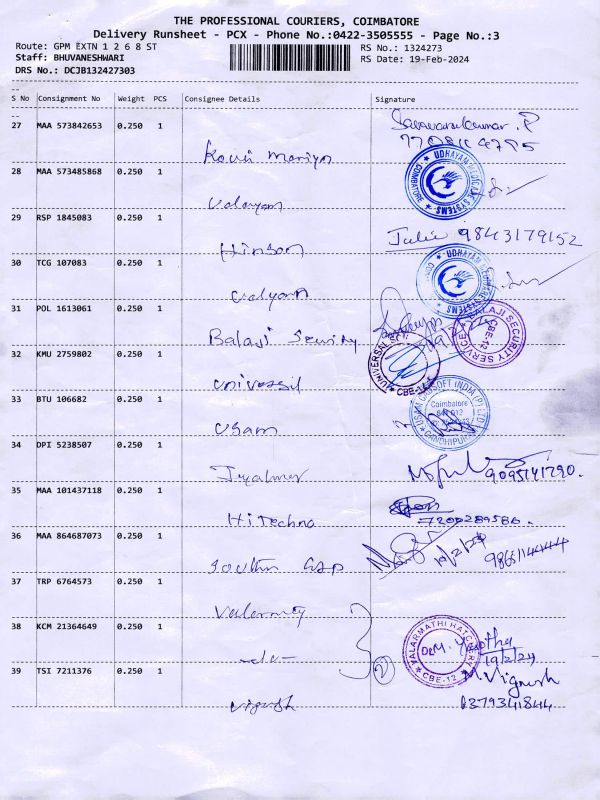 THE PROFESSIONAL COURIERS, COIMBATORE
Delivery Runsheet - PCX - Phone No.:0422-3505555 - Page No.:3
Route: GPM EXTN 1 2 6 8 ST
RS No.: 1324273
Staff: BHUVANESHWARI
RS Date: 19-Feb-2024
DRS No.: DCJB132427303
S No Consignment No Weight PCS Consignee Details Signature
27 MAA 573842653 0.250 1
Saravanakumar. P
28 MAA 573485868 0.250 1
UDHAYAM
COIMBATORE
29 RSP 1845083 0.250 1
Julie 9843179152
30 TCG 107083 0.250 1
UDHAYAM
31 POL 1613061 0.250 1
Balaji Security
BALAJI SECURITY SERVICE
CBE-12
32 KMU 2759802 0.250 1
UNIVERSAL
CBE-12
33 BTU 106682 0.250 1
Usam
Coimbatore
GANDHIPURAM
34 DPI 5238507 0.250 1
9095141790.
35 MAA 101437118 0.250 1
Hi Techno
7200289586.
36 MAA 864687073 0.250 1
19/2/24
37 TRP 6764573 0.250 1
38 KCM 21364649 0.250 1
-do-
2
VALARMATHI HATCHERY
CBE-12
19/2/24
39 TSI 7211376 0.250 1
Vignesh
M. Vignesh